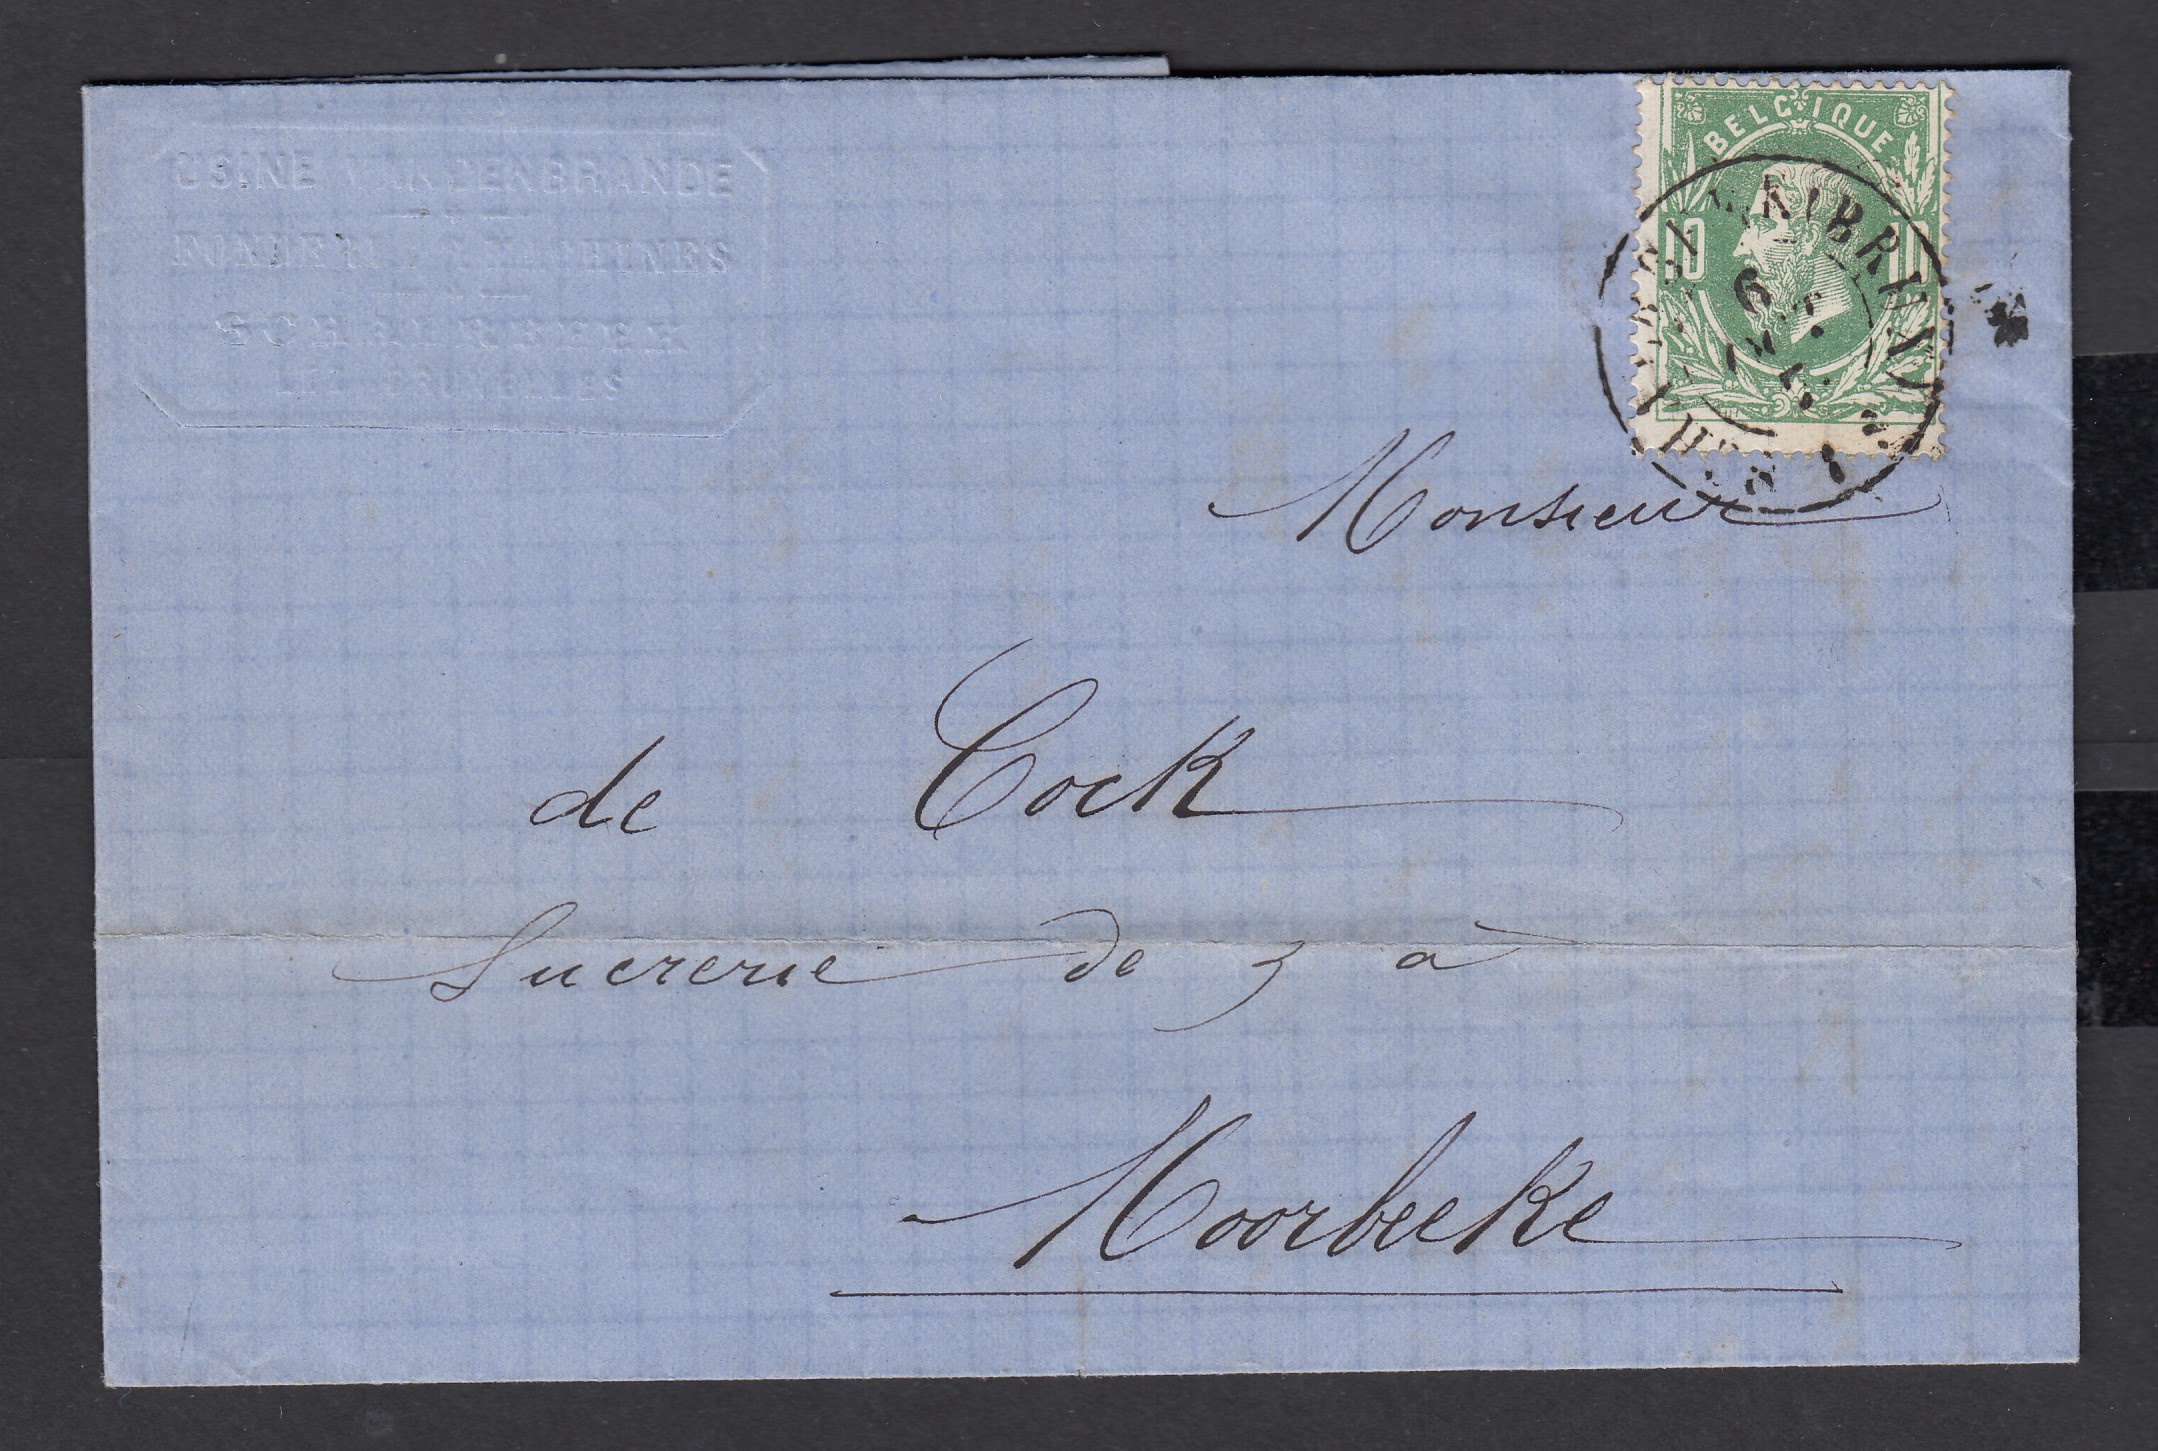 USINE VANDENBRANDE
FONDERIE & MACHINES
SCHAERBEEK
LEZ BRUXELLES
BELGIQUE
10 10
6
Monsieur
de Cock
Sucrerie de 3 à
Moorbeeke